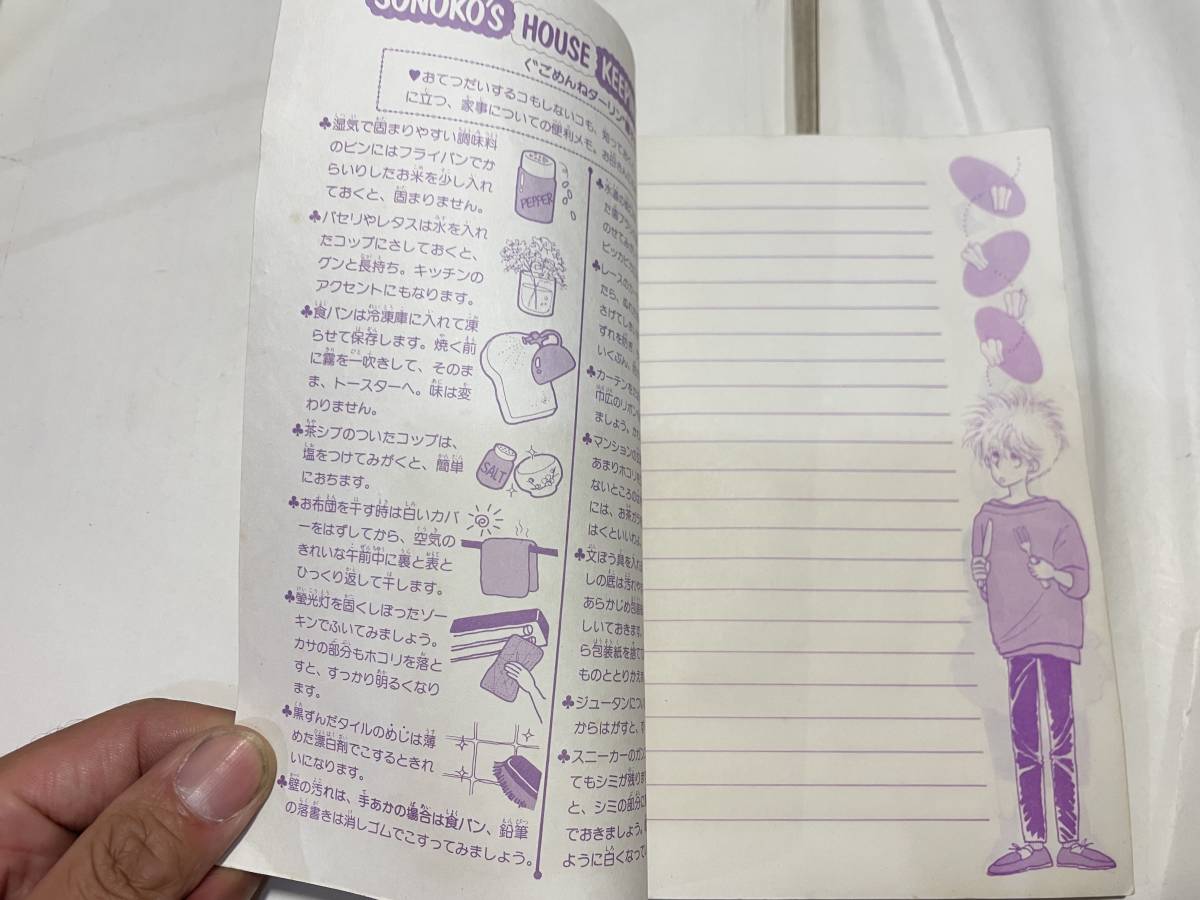 SONOKO'S HOUSE KEEP
ぐごめんねダーリン
♥おてつだいするコもしないコも、知ってお
に立つ、家事についての便利メモ。お
♣湿気で固まりやすい調味料
のビンにはフライパンでか
らいりしたお米を少し入れ
ておくと、固まりません。
♣パセリやレタスは水を入れ
たコップにさしておくと、
グンと長持ち。キッチンの
アクセントにもなります。
♣食パンは冷凍庫に入れて凍
らせて保存します。焼く前
に霧を一吹きして、そのま
ま、トースターへ。味は変
わりません。
♣茶シブのついたコップは、
塩をつけてみがくと、簡単
におちます。
♣お布団を干す時は白いカバ
ーをはずしてから、空気の
きれいな午前中に裏と表と
ひっくり返して干します。
♣螢光灯を固くしぼったゾー
キンでふいてみましょう。
カサの部分もホコリを落と
すと、すっかり明るくなり
ます。
♣黒ずんだタイルのめじは薄
めた漂白剤でこするときれ
いになります。
♣壁の汚れは、手あかの場合は食パン、鉛筆
の落書きは消しゴムでこすってみましょう。
PEPPER
SALT
た歯ブラ
のせてみ
ピッカピ
♣レースの
たら、ぬ
さげてしま
ずれを防
いくぶん、
♣カーテンを
巾広のリボン
ましょう。
♣マンションの
あまりホコリ
ないところの
には、お茶が
はくといいわ
♣文ぼう具を入れ
しの底は汚れや
あらかじめ包装
しいておきます。
ら包装紙を捨て
ものととりかえ
♣ジュータンにつ
からはがすと、
♣スニーカーのガン
てもシミが残りま
と、シミの部分に
でおきましょう。
ように白くなって